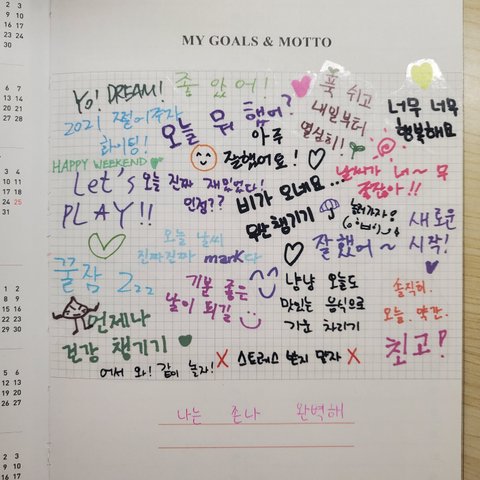 MY GOALS & MOTTO
Yo! DREAM!
좋았어!
푹 쉬고
내일부터
열심히!!
너무 너무
행복해요
2021 쩔어주자
화이팅!
오늘 뭐 했어?
아주
잘했어요!
HAPPY WEEKEND
Let's
PLAY!!
오늘 진짜 재밌었다!
인정??
비가 오네요...
우산 챙기기
날씨가 너~무
좋잖아!!
놀러가자!
새로운
시작!
잘했어~
오늘 날씨
진짜진짜 mark다
꿀잠 Zzz
기분 좋은
날이 되길
냠냠 오늘도
맛있는 음식으로
기운 차리기
솔직히.
오늘. 약간.
최고!
언제나
건강 챙기기
어서 와! 같이 놀자!
X 스트레스 받지 말자 X
나는 존나 완벽해
3 4
10 11
17 18
24 25
30
6 7
13 14
20 21
27 28
3 4
10 11
17 18
24 25
1 2
8 9
15 16
22 23
29 30
5 6
12 13
19 20
26 27
2 3
9 10
16 17